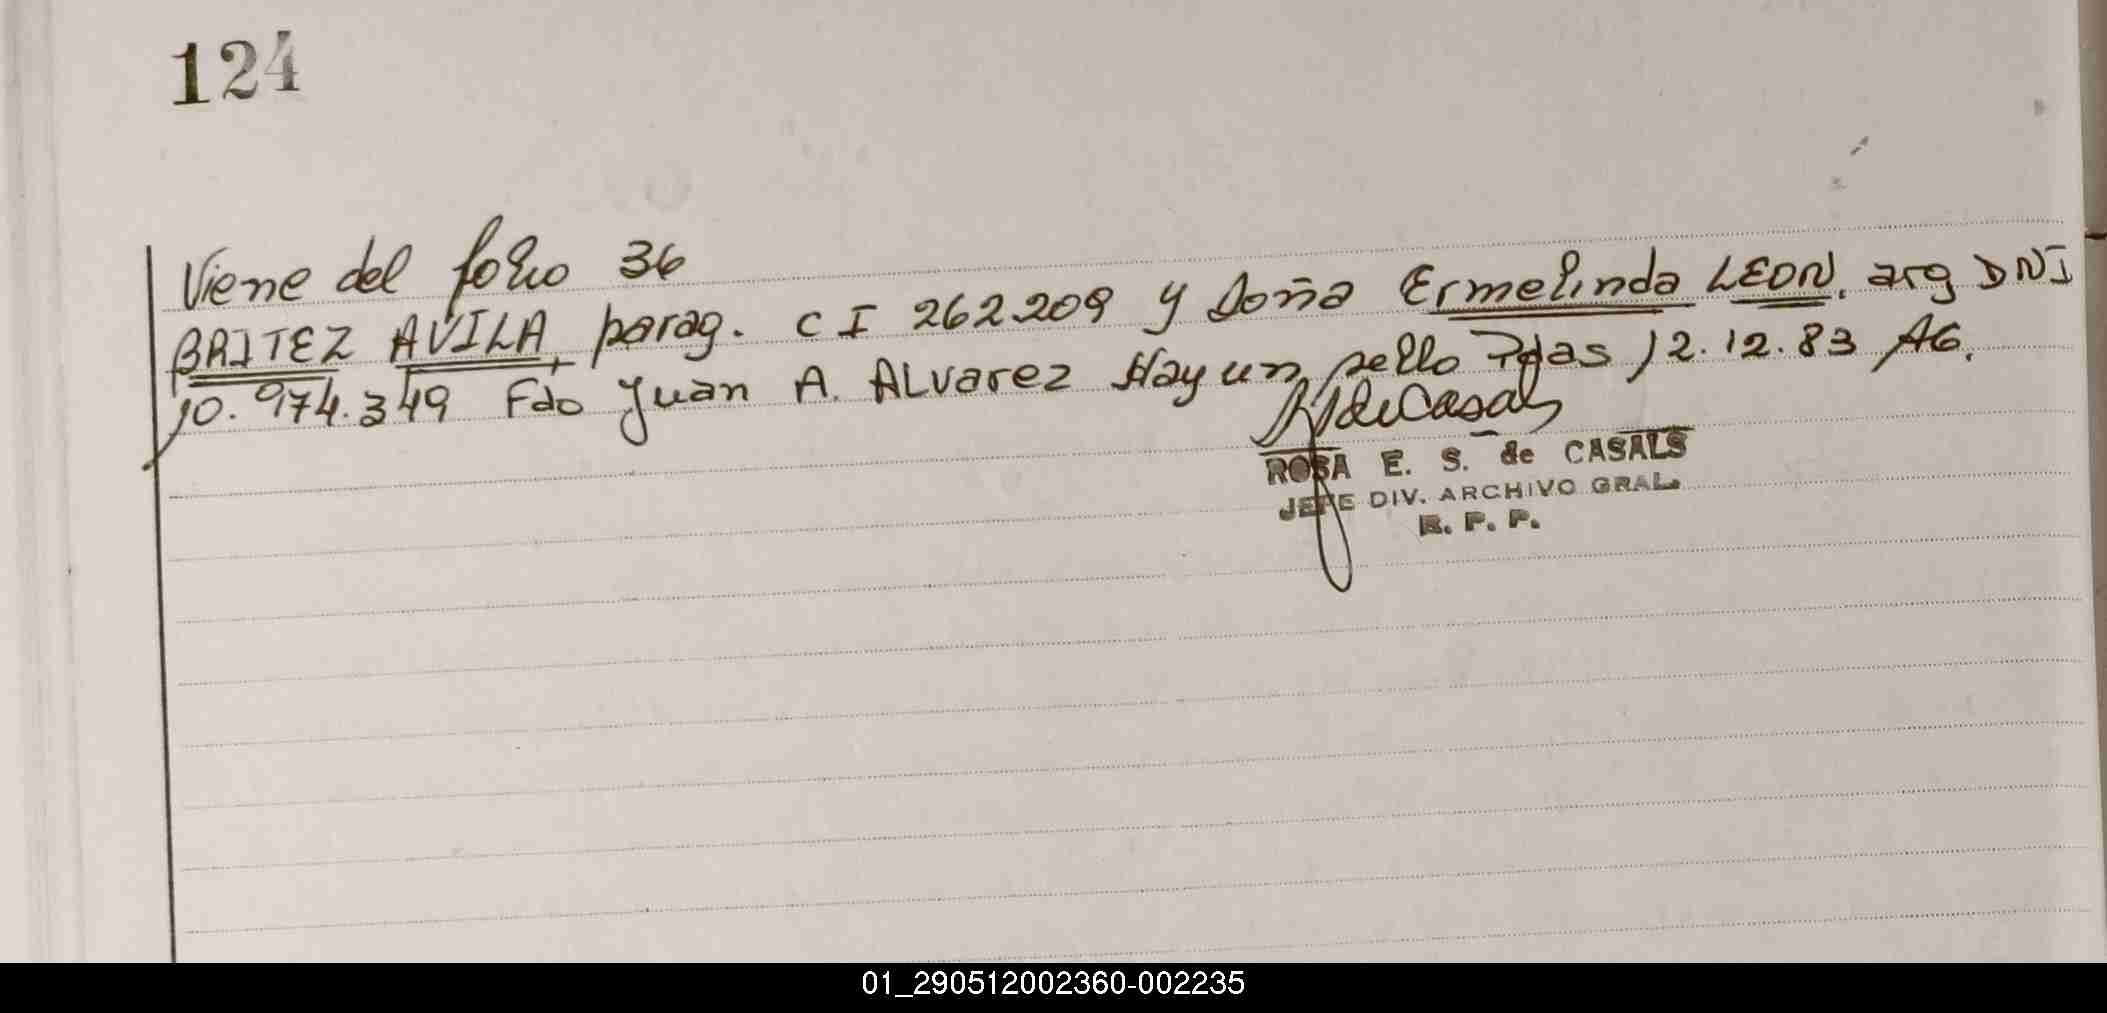 124
Viene del folio 36
BRITEZ AVILA, parag. C I 262209 y Doña Ermelinda LEON, arg DNI
10.974.349 Fdo Juan A. ALvarez Hay un sello Pdas 12.12.83 AG.
ROSA E. S. de CASALS
JEFE DIV. ARCHIVO GRAL.
R. P. P.
01_290512002360-002235